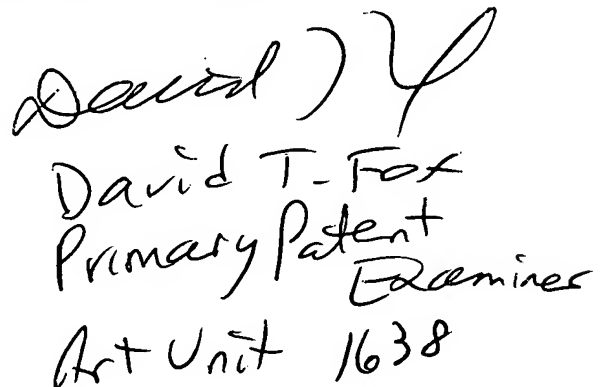 David
David T. Fox
Primary Patent
Examiner
Art Unit 1638